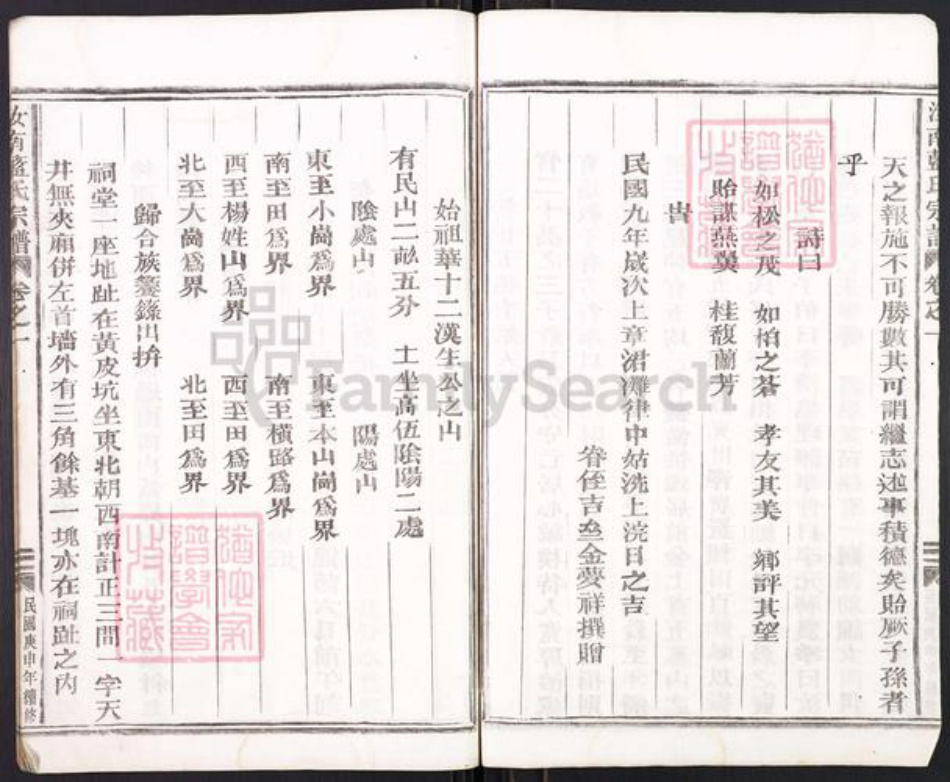 汝南藍氏宗譜 卷之一
天之報施不可勝數其可謂繼志述事積德矣貽厥子孫者
乎
詩曰
如松之茂 如柏之蒼 孝友其美 鄉評其望
貽謀燕翼 桂馥蘭芳
旹
民國九年歲次上章涒灘律中姑洗上浣日之吉
眷侄吉亝金夔祥撰贈
始祖華十二漢生公之山
有民山二畝五分 土坐高伍陰陽二處
陰處山 陽處山
東至小崗為界 東至本山崗為界
南至田為界 南至橫路為界
西至楊姓山為界 西至田為界
北至大崗為界 北至田為界
歸合族蓄籙出拚
祠堂一座地趾在黃皮坑坐東北朝西南計正三間一字天
井無夾廂併左首墻外有三角餘基一塊亦在祠趾之內
汝南藍氏宗譜 卷之一
民國庚申年續修
FamilySearch